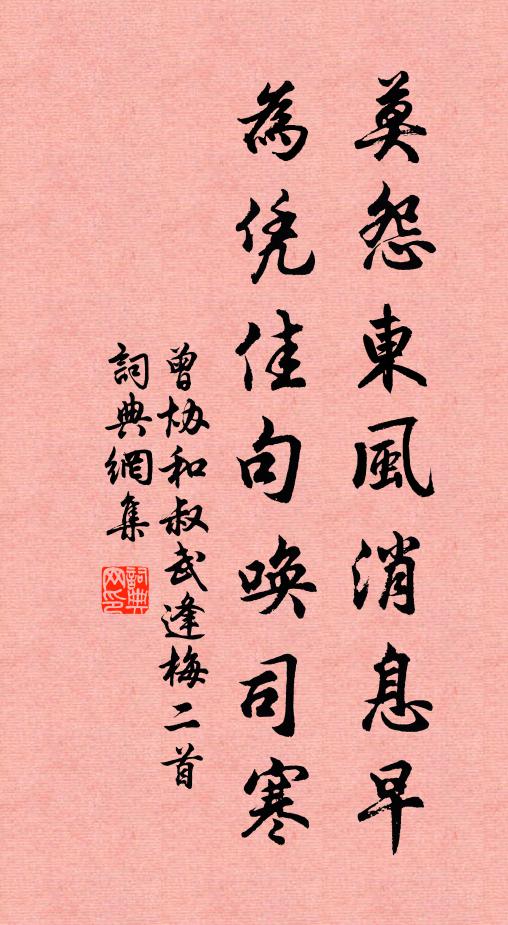 莫怨東風消息早
為凭佳句喚司寒
曾协和叔武逢梅二首
詞典網集
詞典網印